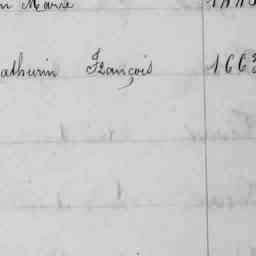 n Marie
athurin François 166